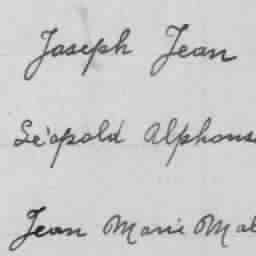 Joseph Jean
Léopold Alphons
Jean Marie Mal